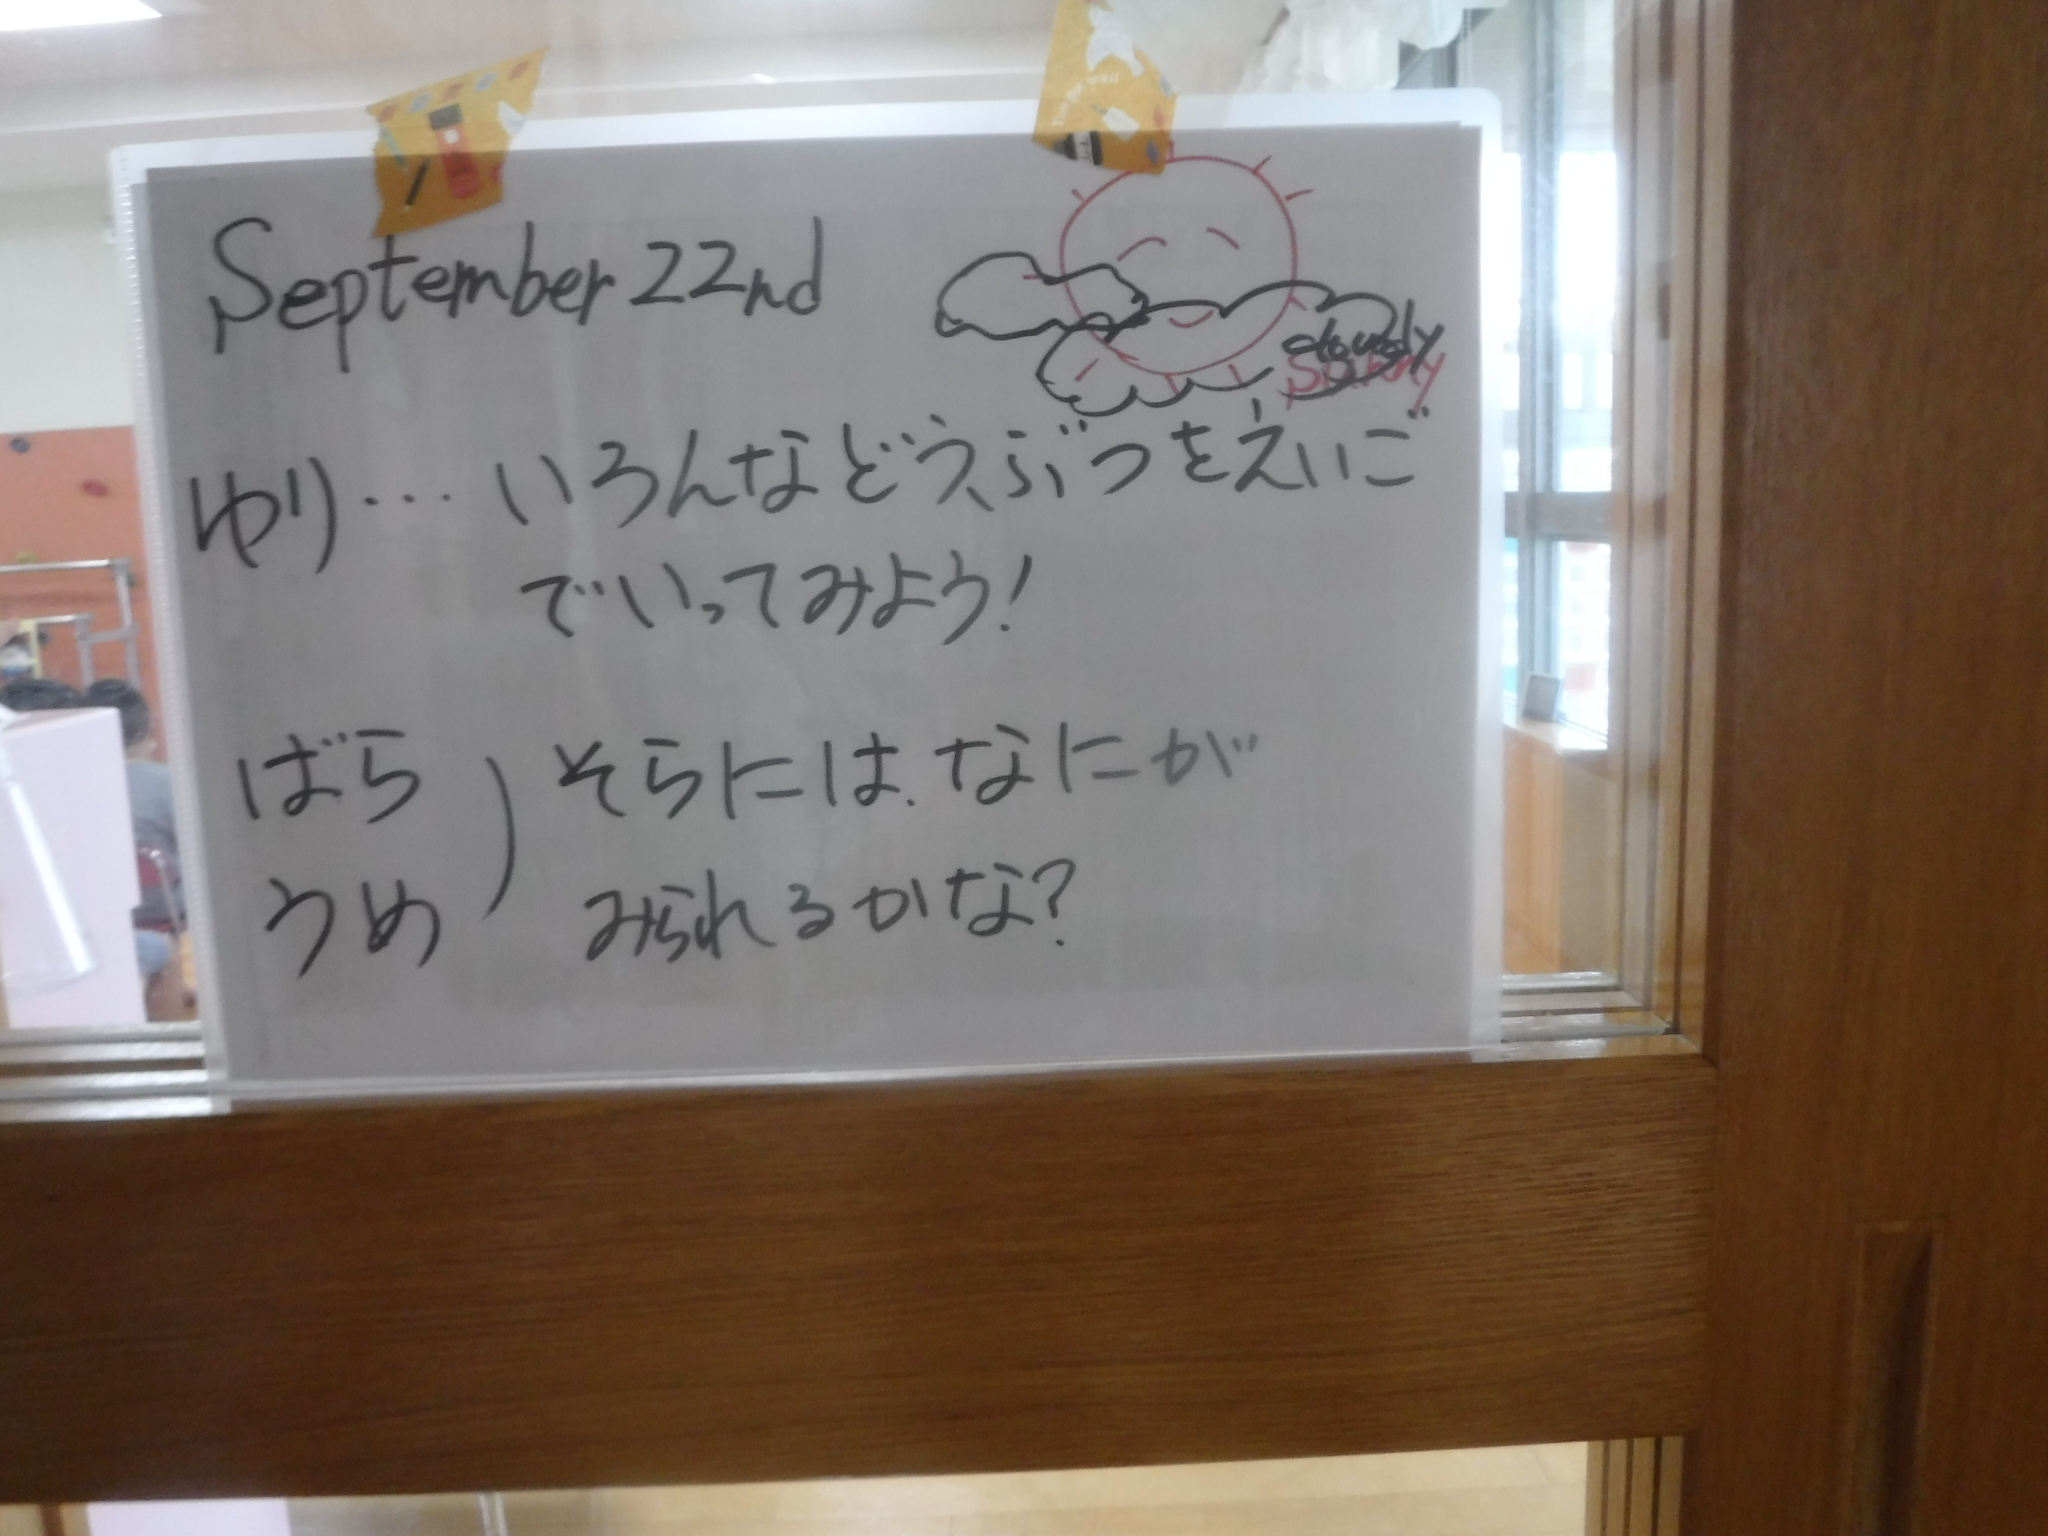 September 22nd
cloudy
Sunny
ゆり… いろんなどうぶつをえいご
でいってみよう!
ばら
うめ
) そらには、なにが
みられるかな?